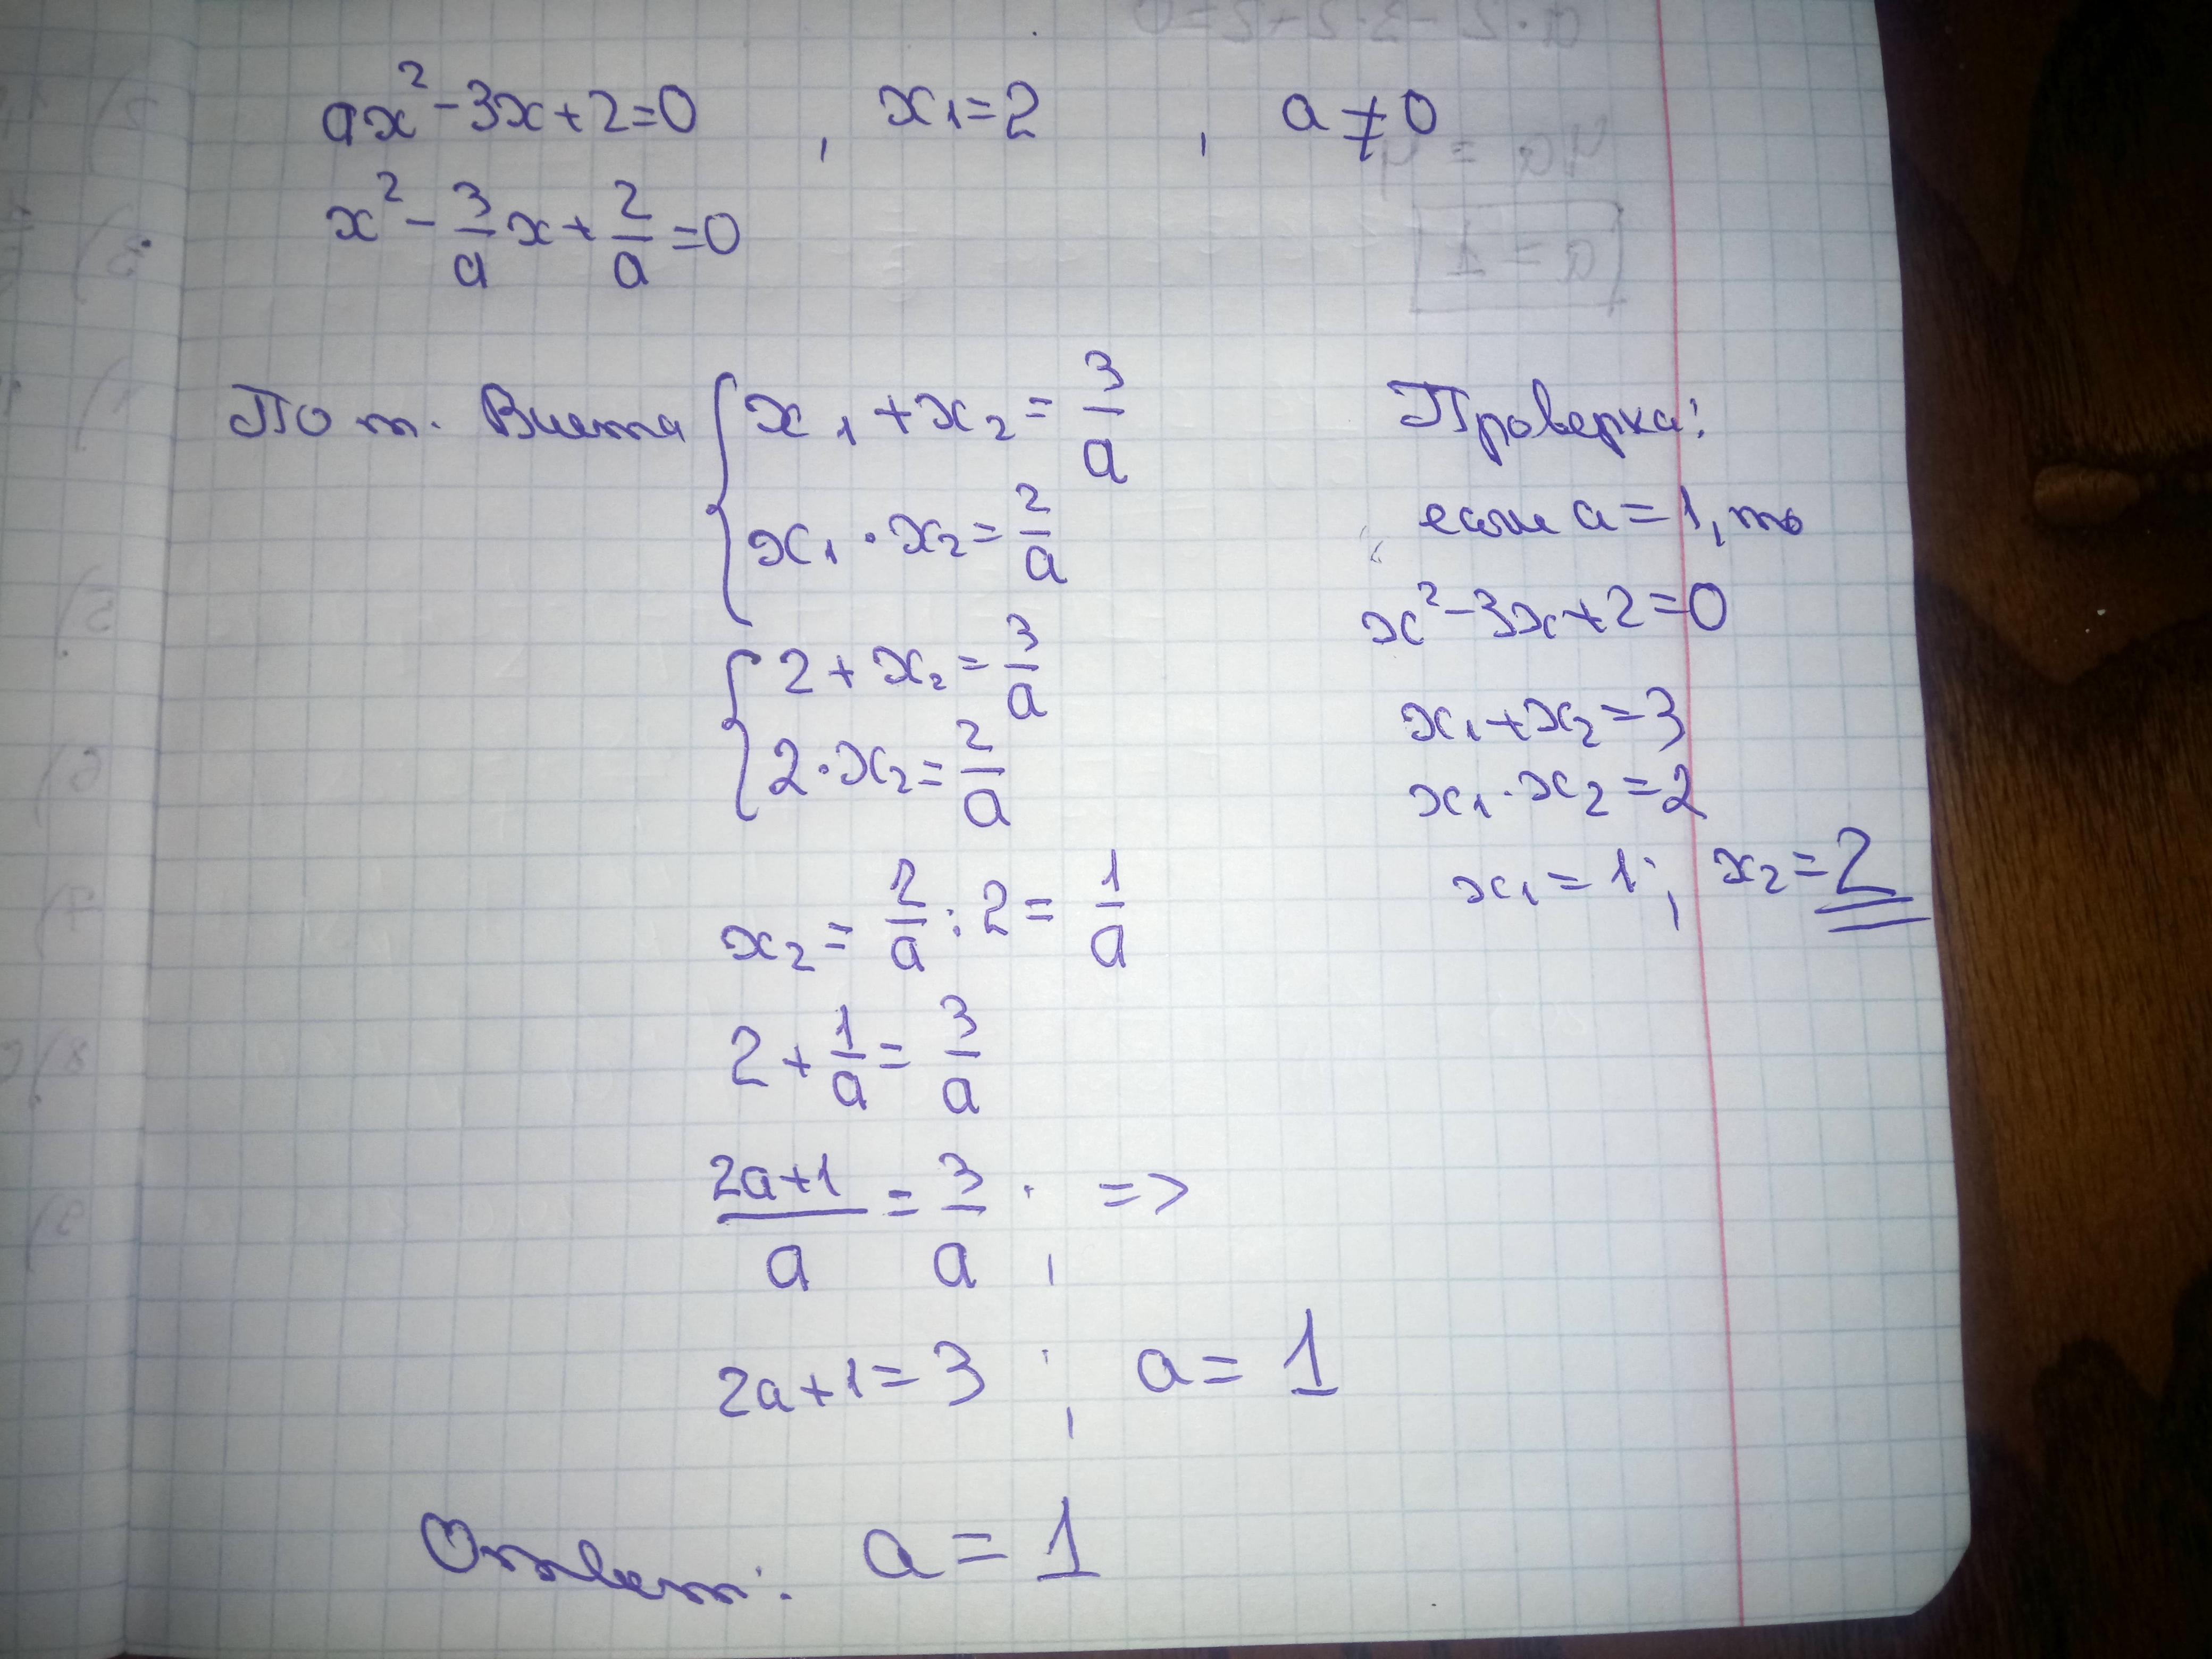 ax² - 3x + 2 = 0 , x₁ = 2 , a ≠ 0
x² - 3/a x + 2/a = 0
По т. Виета { x₁ + x₂ = 3/a
x₁ · x₂ = 2/a
{ 2 + x₂ = 3/a
2 · x₂ = 2/a
x₂ = 2/a : 2 = 1/a
2 + 1/a = 3/a
(2a+1)/a = 3/a ; =>
2a + 1 = 3 ; a = 1
Ответ: a = 1
Проверка:
если a = 1, то
x² - 3x + 2 = 0
x₁ + x₂ = 3
x₁ · x₂ = 2
x₁ = 1 ; x₂ = 2